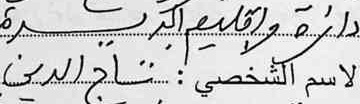 دائرة و إقليم الدريوش
لاسم الشخصي : تاج الدين